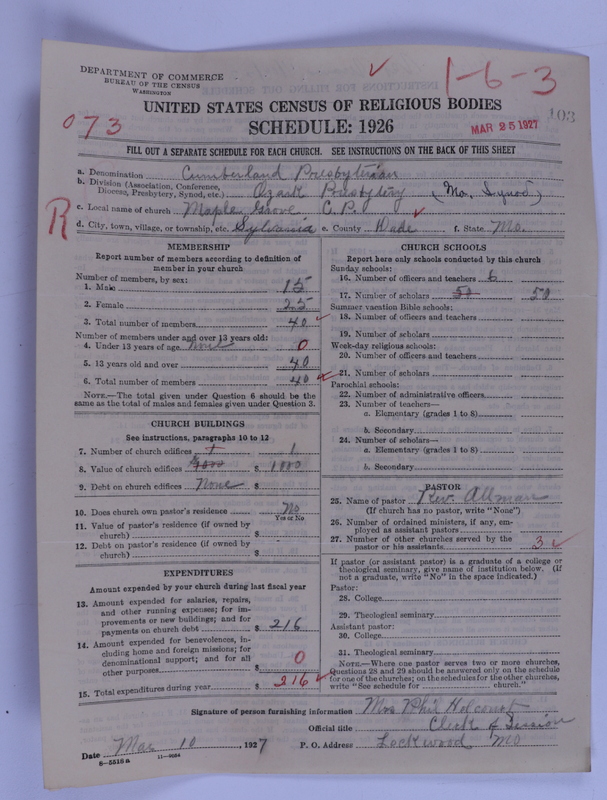 DEPARTMENT OF COMMERCE
BUREAU OF THE CENSUS
WASHINGTON
1-6-3
103
UNITED STATES CENSUS OF RELIGIOUS BODIES
073
SCHEDULE: 1926
MAR 25 1927
FILL OUT A SEPARATE SCHEDULE FOR EACH CHURCH. SEE INSTRUCTIONS ON THE BACK OF THIS SHEET
a. Denomination Cumberland Presbyterian
b. Division (Association, Conference, Diocese, Presbytery, Synod, etc.) Ozark Presbytery (Mo. Synod)
R
c. Local name of church Maple Grove C. P.
d. City, town, village, or township, etc. Sylvania e. County Dade f. State Mo.
MEMBERSHIP
Report number of members according to definition of member in your church
Number of members, by sex:
1. Male 15
2. Female 25
3. Total number of members 40
Number of members under and over 13 years old:
4. Under 13 years of age None 0
5. 13 years old and over 40
6. Total number of members 40
NOTE.—The total given under Question 6 should be
same as the total of males and females given under Question 3.
CHURCH BUILDINGS
See instructions, paragraphs 10 to 12
7. Number of church edifices 1 1
8. Value of church edifices $ 1000
9. Debt on church edifices None $
10. Does church own pastor's residence No
Yes or No
11. Value of pastor's residence (if owned by
church) $
12. Debt on pastor's residence (if owned by
church) $
EXPENDITURES
Amount expended by your church during last fiscal year
13. Amount expended for salaries, repairs,
and other running expenses; for im-
provements or new buildings; and for
payments on church debt $ 216
14. Amount expended for benevolences, in-
cluding home and foreign missions; for
denominational support; and for all
other purposes $ 0
15. Total expenditures during year $ 216
CHURCH SCHOOLS
Report here only schools conducted by this church
Sunday schools:
16. Number of officers and teachers 6
17. Number of scholars 50 50
Summer vacation Bible schools:
18. Number of officers and teachers
19. Number of scholars
Week-day religious schools:
20. Number of officers and teachers
21. Number of scholars
Parochial schools:
22. Number of administrative officers
23. Number of teachers—
a. Elementary (grades 1 to 8)
b. Secondary
24. Number of scholars—
a. Elementary (grades 1 to 8)
b. Secondary
PASTOR
25. Name of pastor Rev. Allman
(If church has no pastor, write "None")
26. Number of ordained ministers, if any, em-
ployed as assistant pastors
27. Number of other churches served by the
pastor or his assistants 3
If pastor (or assistant pastor) is a graduate of a college or
theological seminary, give name of institution below. (If
not a graduate, write "No" in the space indicated.)
Pastor:
28. College
29. Theological seminary
Assistant pastor:
30. College
31. Theological seminary
NOTE.—Where one pastor serves two or more churches,
Questions 28 and 29 should be answered only on the schedule
for one of the churches; on the schedules for the other churches,
write "See schedule for church."
Signature of person furnishing information Mrs Phil
Official title Clerk of Session
Date Mar 10, 1927 P. O. Address Lockwood Mo
8-5516a 11-9084